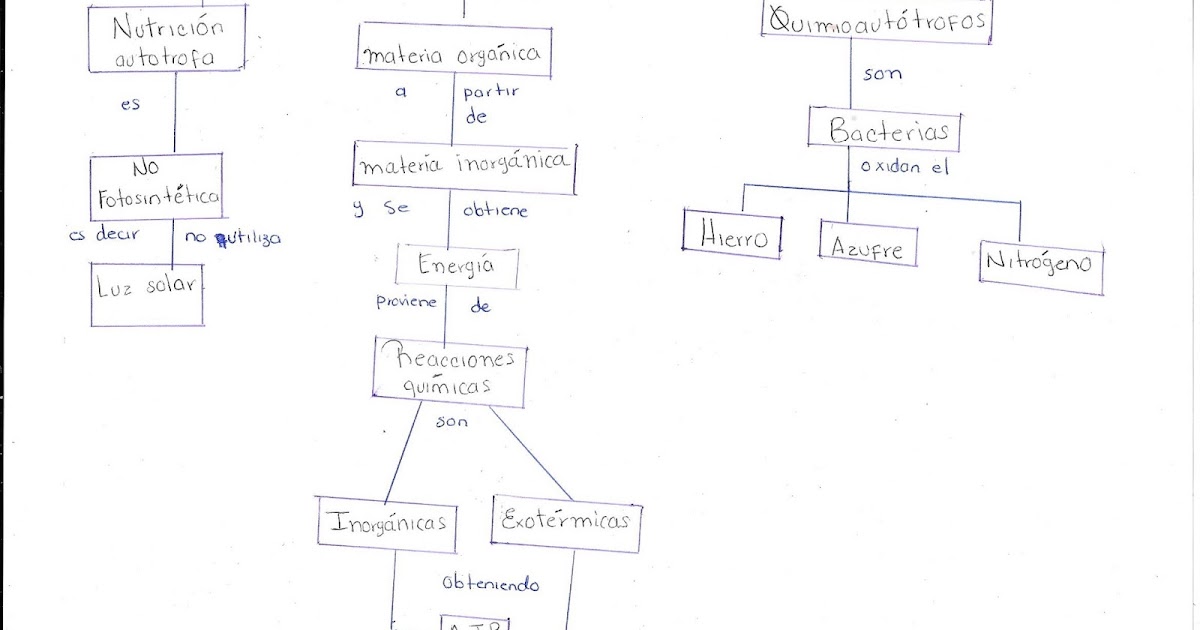 Nutrición
autotrofa
es
No
Fotosintética
es decir no utiliza
Luz solar
materia orgánica
a partir
de
materia inorgánica
y se obtiene
Energía
proviene de
Reacciones
químicas
son
Inorgánicas
Exotérmicas
obteniendo
ATP
Quimioautótrofos
son
Bacterias
oxidan el
Hierro
Azufre
Nitrógeno